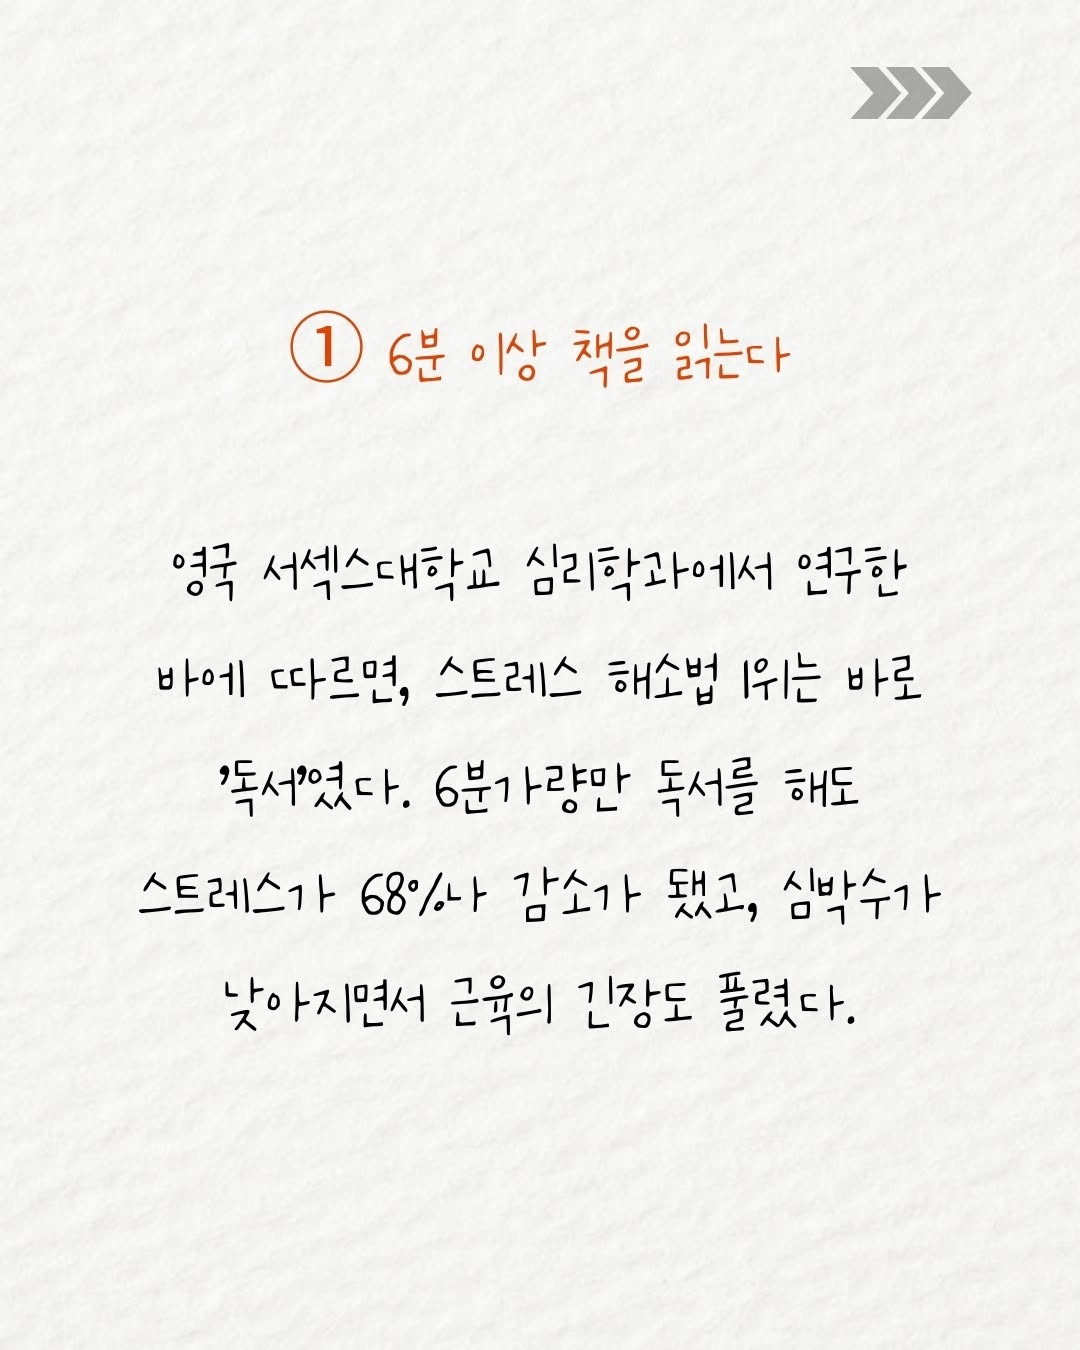 ① 6분 이상 책을 읽는다
영국 서섹스대학교 심리학과에서 연구한
바에 따르면, 스트레스 해소법 1위는 바로
'독서'였다. 6분가량만 독서를 해도
스트레스가 68%나 감소가 됐고, 심박수가
낮아지면서 근육의 긴장도 풀렸다.